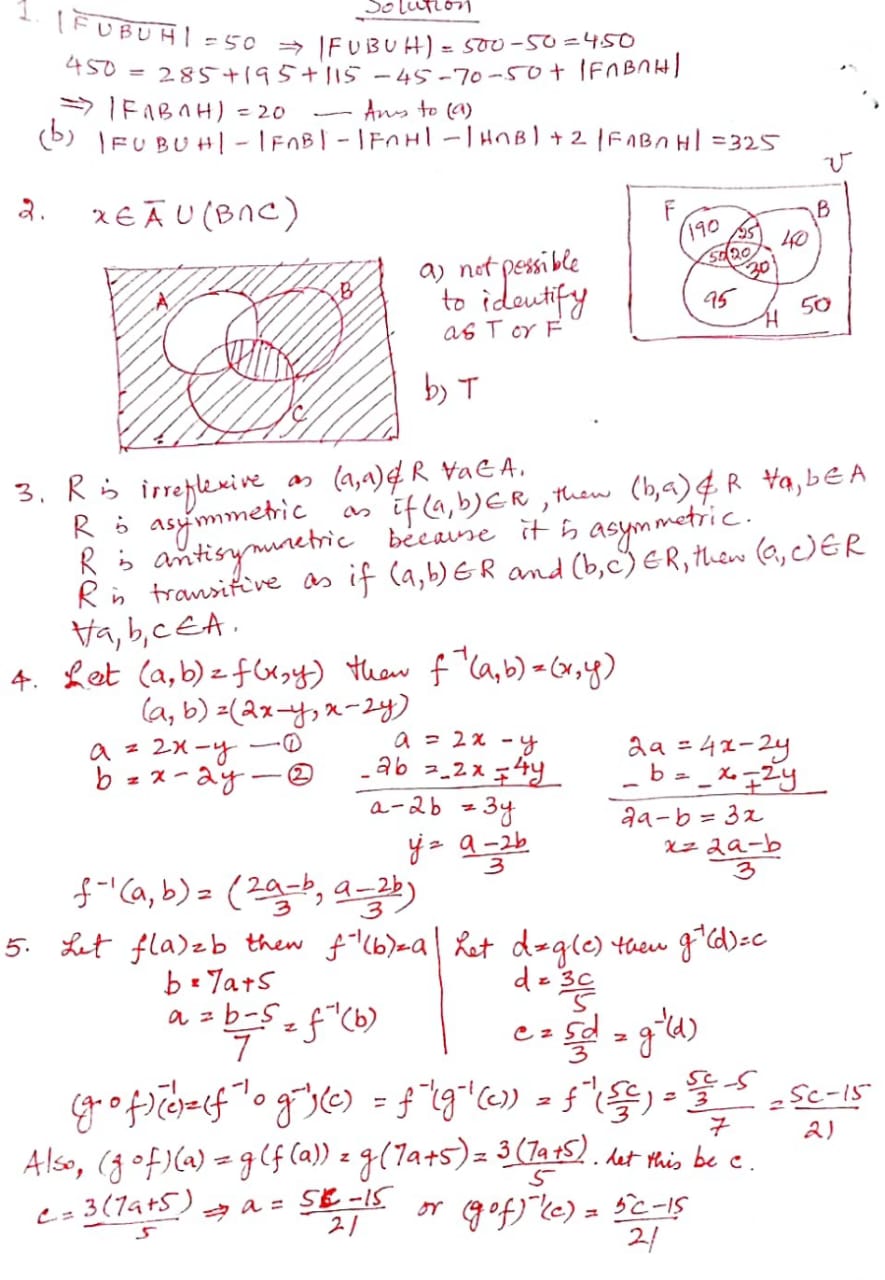 Solution
1. |F∪B∪H|‾ = 50 ⇒ |F∪B∪H| = 500-50 = 450
450 = 285+195+115-45-70-50+ |F∩B∩H|
⇒ |F∩B∩H| = 20 — Ans to (a)
(b) |F∪B∪H| - |F∩B| - |F∩H| - |H∩B| + 2 |F∩B∩H| = 325
U
F
B
190
25
40
50
20
30
95
H
50
2. x∈ A̅ ∪ (B∩C)
A
B
C
a) not possible
to identify
as T or F
b) T
3. R is irreflexive as (a,a)∉R ∀a∈A.
R is asymmetric as if (a,b)∈R, then (b,a)∉R ∀a,b∈A
R is antisymmetric because it is asymmetric.
R is transitive as if (a,b)∈R and (b,c)∈R, then (a,c)∈R
∀a,b,c∈A.
4. Let (a,b) = f(x,y) then f⁻¹(a,b) = (x,y)
(a,b) = (2x-y, x-2y)
a = 2x-y —①
b = x-2y —②
a = 2x - y
-2b = -2x ∓ 4y
a-2b = 3y
y = (a-2b)/3
2a = 4x-2y
- b = - x ∓ 2y
2a-b = 3x
x = (2a-b)/3
f⁻¹(a,b) = ((2a-b)/3, (a-2b)/3)
5. Let f(a)=b then f⁻¹(b)=a
b = 7a+5
a = (b-5)/7 = f⁻¹(b)
Let d=g(c) then g⁻¹(d)=c
d = 3c/5
c = 5d/3 = g⁻¹(d)
(g∘f)⁻¹(c) = (f⁻¹∘g⁻¹)(c) = f⁻¹(g⁻¹(c)) = f⁻¹(5c/3) = (5c/3 - 5)/7 = (5c-15)/21
Also, (g∘f)(a) = g(f(a)) = g(7a+5) = 3(7a+5)/5. Let this be c.
c = 3(7a+5)/5 ⇒ a = (5c-15)/21 or (g∘f)⁻¹(c) = (5c-15)/21